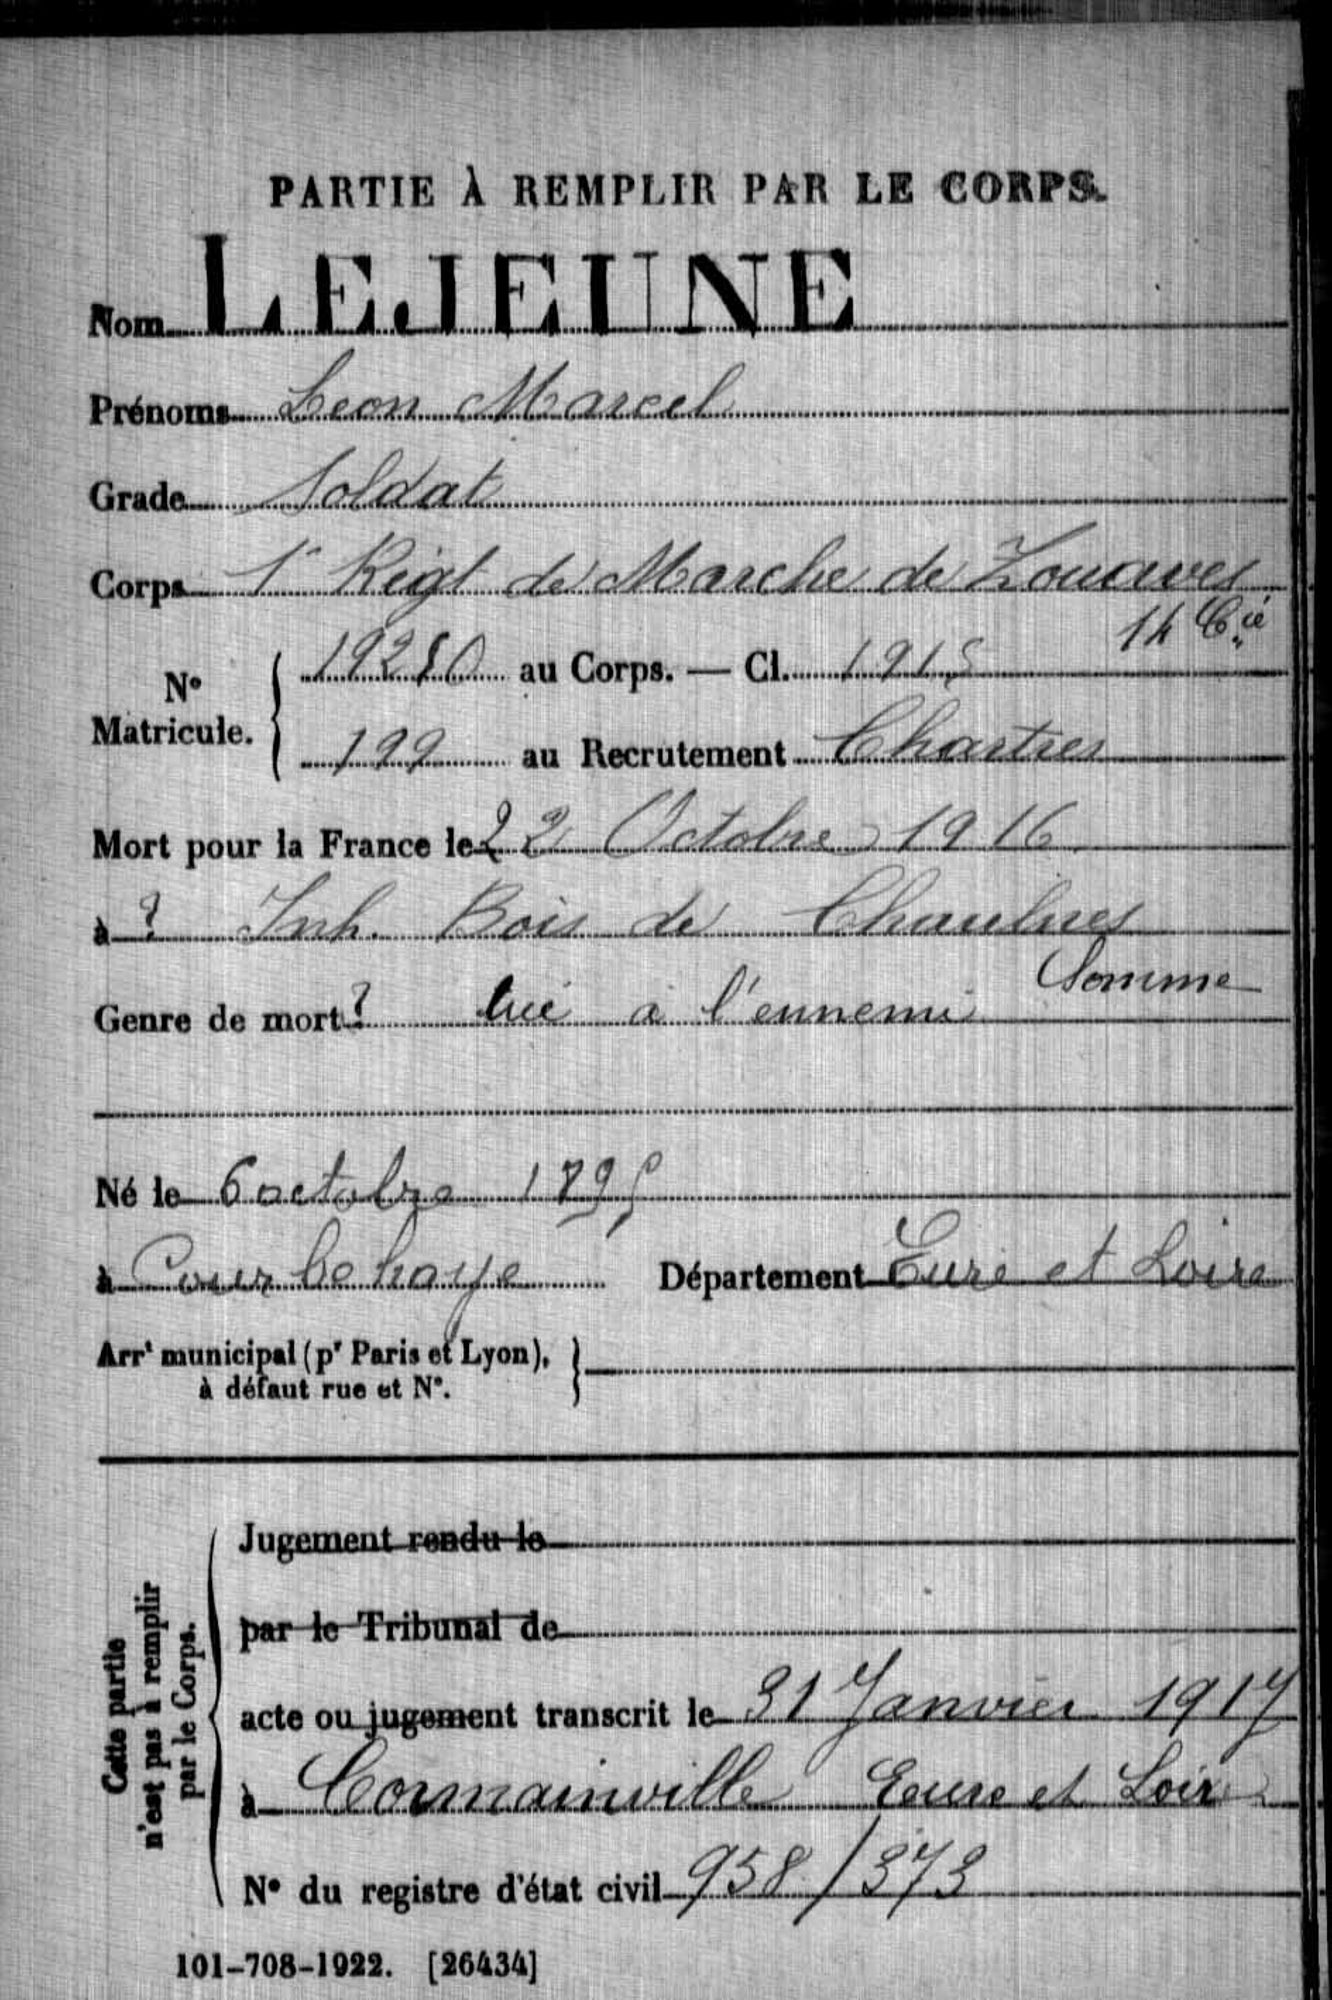 PARTIE À REMPLIR PAR LE CORPS.
Nom LEJEUNE
Prénoms Leon Marcel
Grade Soldat
Corps 1er Régt de Marche de Zouaves
14 Cie
N° Matricule. 19250 au Corps. — Cl. 1915
199 au Recrutement Chartres
Mort pour la France le 22 Octobre 1916
à ? Inh. Bois de Chaulnes
Somme
Genre de mort ? tué à l'ennemi
Né le 6 octobre 1895
à Courbehaye Département Eure et Loire
Arrt municipal (pr Paris et Lyon),
à défaut rue et N°.
Cette partie
n'est pas à remplir
par le Corps.
Jugement rendu le
par le Tribunal de
acte ou jugement transcrit le 31 Janvier 1917
à Cormainville Eure et Loir
N° du registre d'état civil 958/373
101-708-1922. [26434]